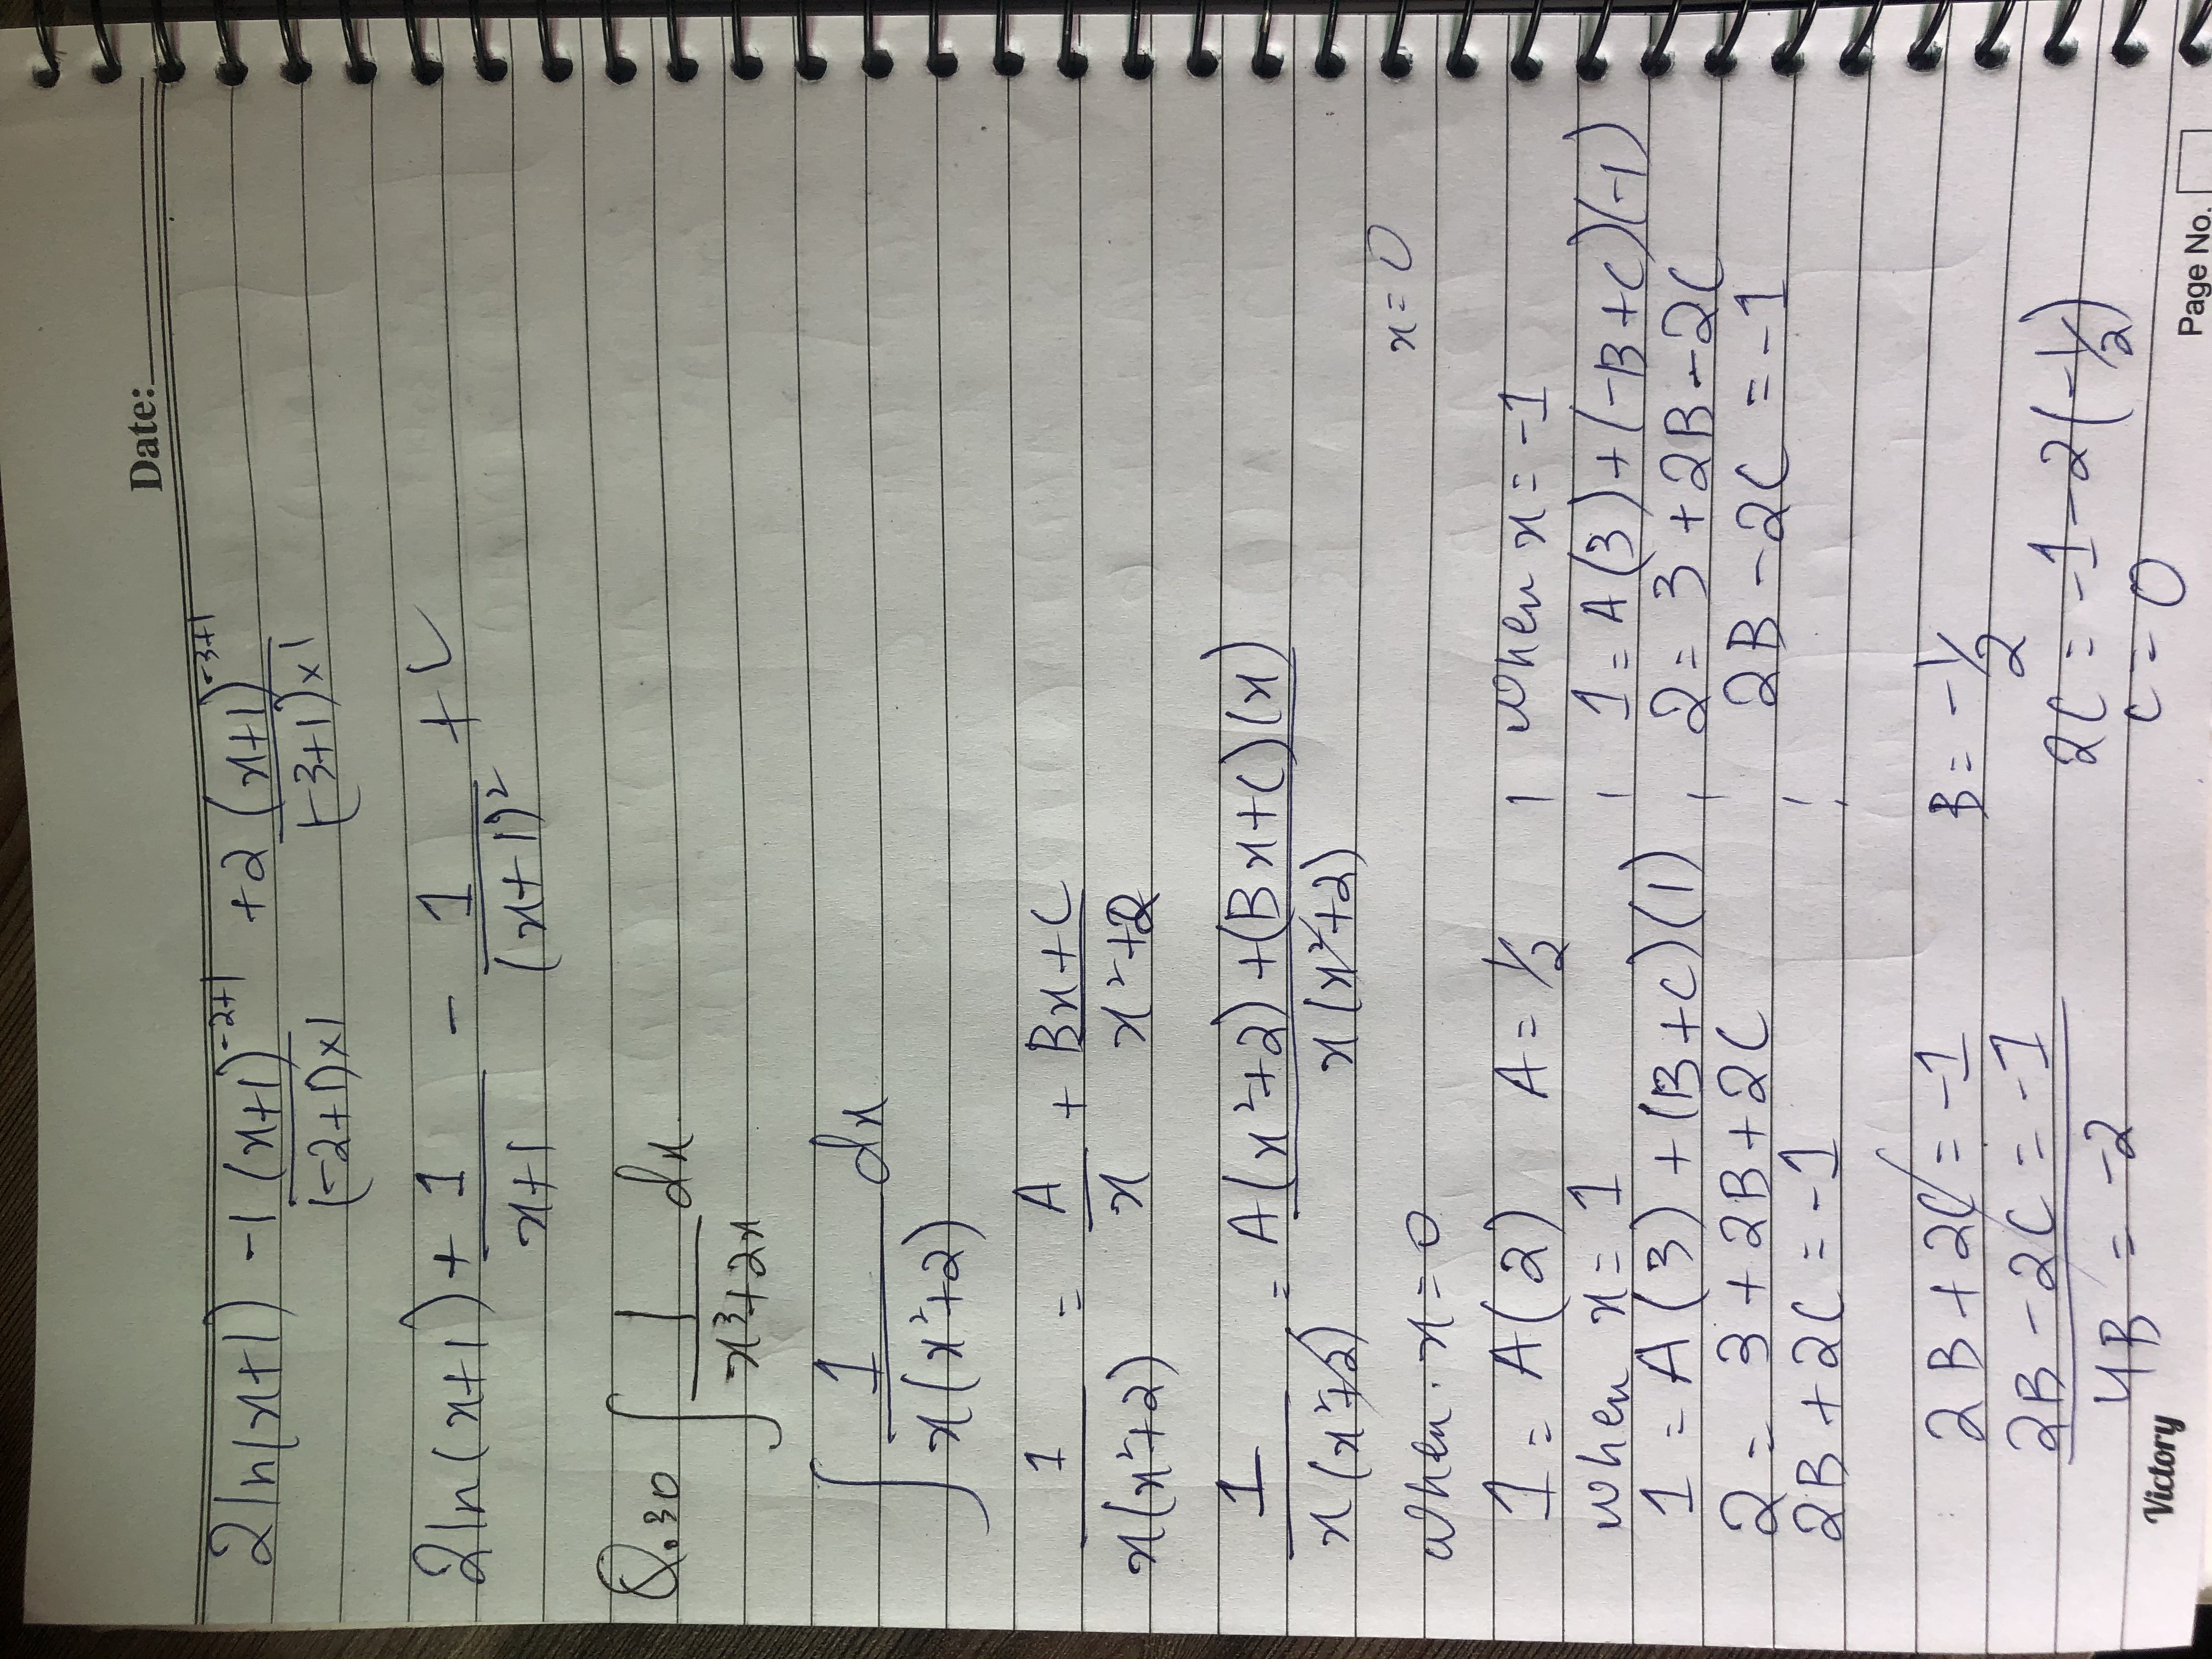 Date:
2ln(x+1) -1 (x+1)^{-2+1}/((-2+1)×1) +2 (x+1)^{-3+1}/((-3+1)×1)
2ln(x+1) + 1/(x+1) - 1/(x+1)² + C
Q.30 ∫ 1/(x³+2x) dx
∫ 1/(x(x²+2)) dx
1/(x(x²+2)) = A/x + (Bx+C)/(x²+2)
1/(x(x²+2)) = (A(x²+2)+(Bx+C)(x))/(x(x²+2))
x=0
when. x=0
1 = A(2) A = 1/2
when x = 1
1 = A(3) + (B+C)(1)
2 = 3 + 2B + 2C
2B + 2C = -1
when x = -1
1 = A(3) + (-B+C)(-1)
2 = 3 + 2B - 2C
2B - 2C = -1
2B + 2C = -1
2B - 2C = -1
4B = -2
B = -1/2
2C = -1 - 2(-1/2)
C = 0
Victory
Page No.